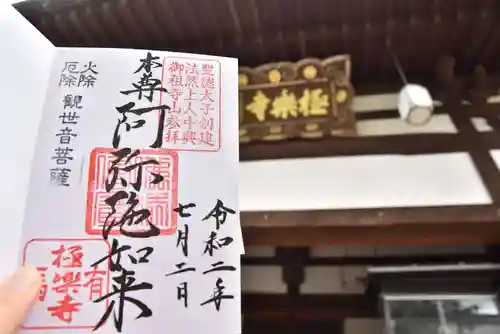 聖徳太子創建
法然上人中興
御祖寺山参拝
本尊
阿弥陀如来
火除
厄除
観世音菩薩
令和二年
七月二日
極楽寺
有
極樂寺